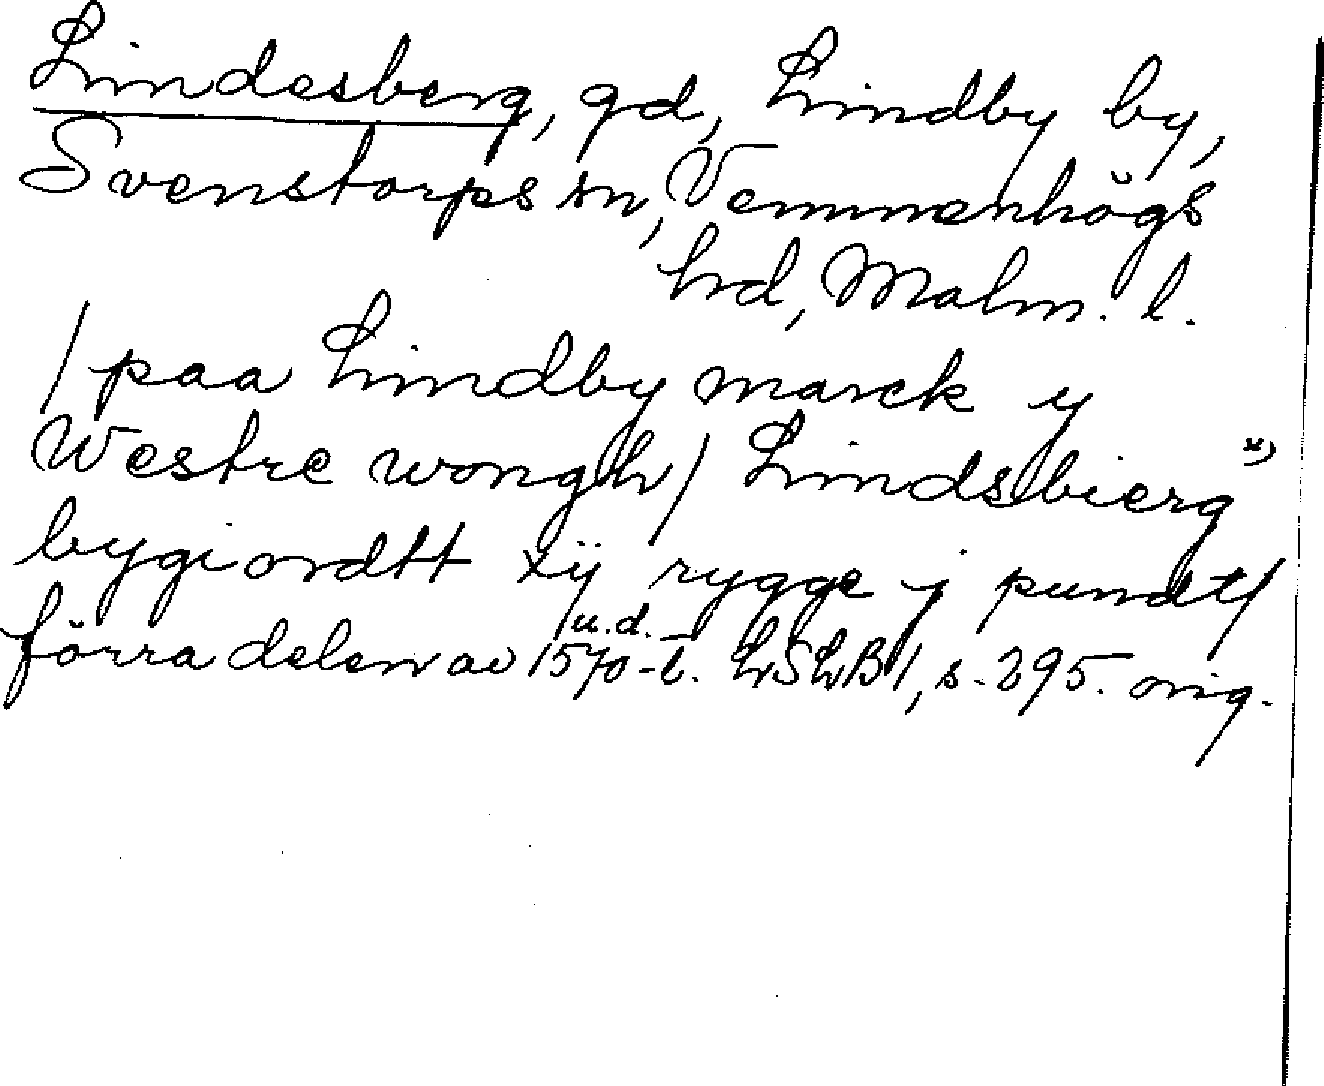 Lindesberg, gd, Lindby by,
Svenstorps sn, Vemmenhögs
hd, Malm. l.
/ paa Lindby marck y
Westre wongh / Lindsbierg *)
bygiordtt xij rygge j pundt/
u.d.
förra delen av 1570-t. LSLB I, s. 295. orig.